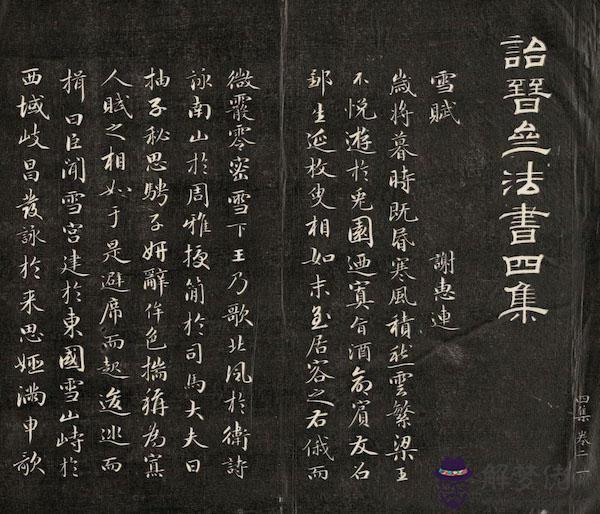 詒晉亝法書四集
雪賦 謝惠連
歲將暮時既昏寒風積愁雲繁梁王
不悅遊於兔園迺寘旨酒命賓友召
鄒生延枚叟相如末至居客之右俄而
微霰零密雪下王乃歌北风於衛詩
詠南山於周雅授簡於司馬大夫曰
抽子秘思騁子妍辭侔色揣稱為寡
人賦之相如于是避席而起逡巡而
揖曰臣聞雪宮建於東國雪山峙於
西域岐昌發詠於来思姬滿申歌
四集 卷二 一